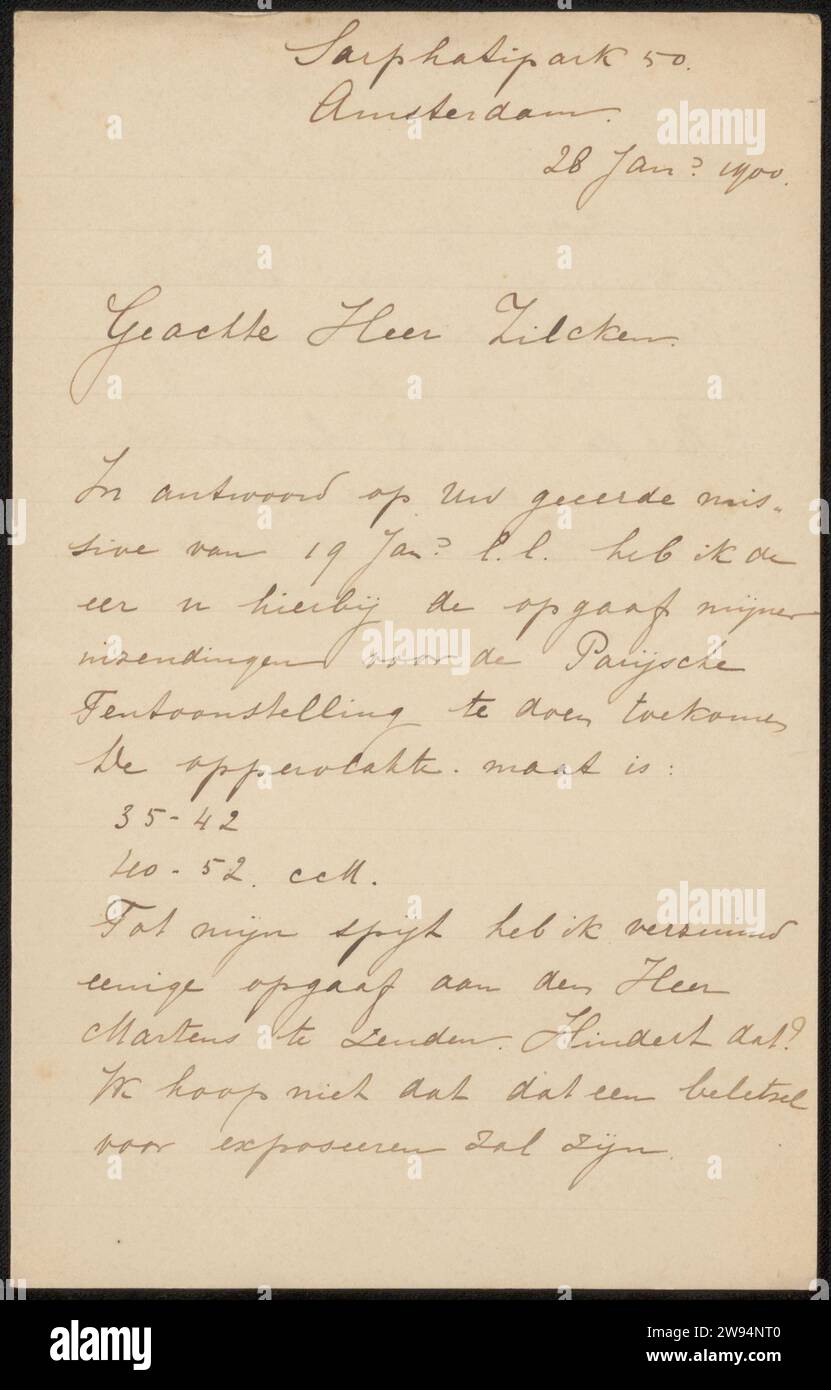 Sarphatipark 50.
Amsterdam.
28 Jan? 1900.
Geachte Heer Zilcken.
In antwoord op Uw geeerde mis„
sive van 19 Jan? l.l. heb ik de
eer u hierbij de opgaaf mijner
inzendingen voor de Parijsche
Tentoonstelling te doen toekomen
De oppervlakte. maat is:
35-42
40-52. ccM.
Tot mijn spijt heb ik verzuimd
eenige opgaaf aan den Heer
Martens te zenden. Hindert dat?
Ik hoop niet dat dat een beletsel
voor exposeeren zal zijn.
alamy
Image ID: 2W94NT0
www.alamy.com